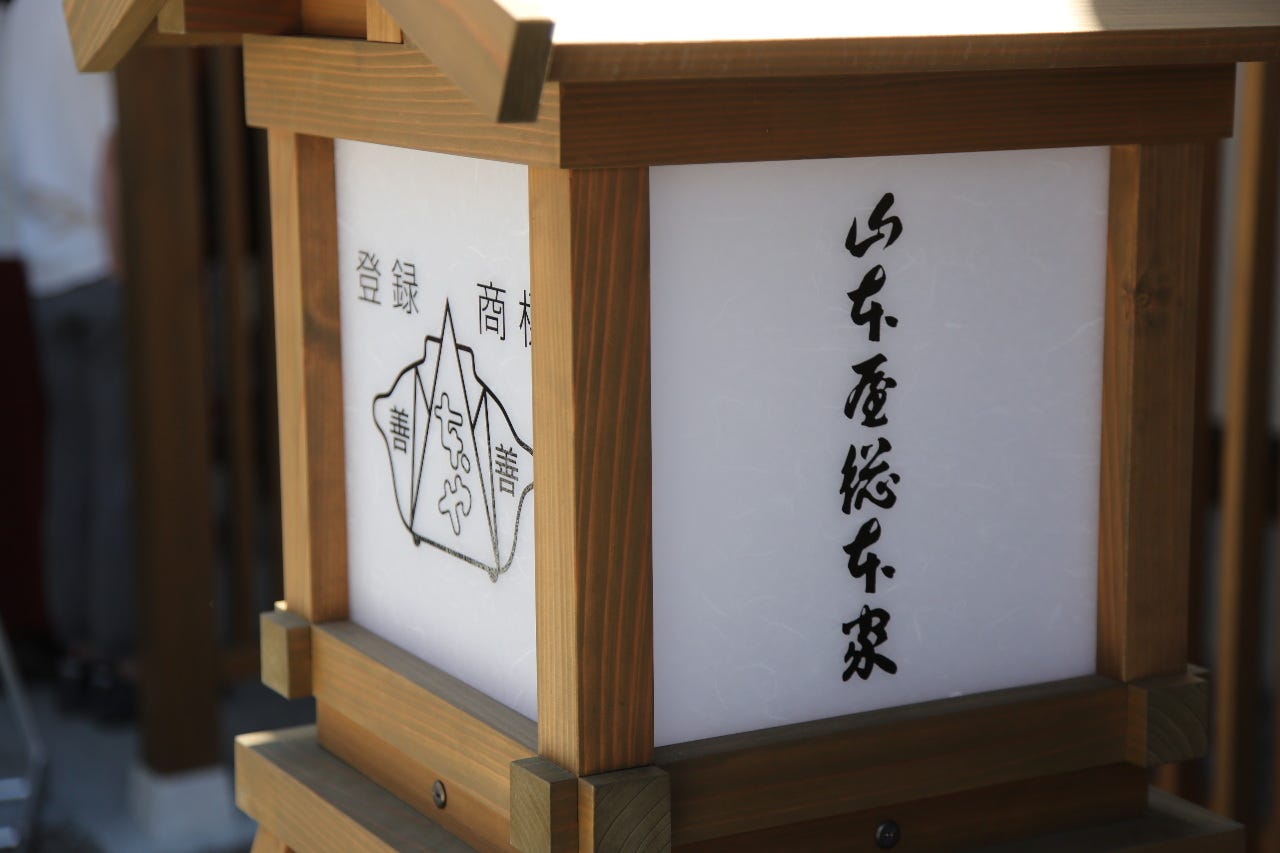 登録 商標
善 ちゃ 善
山本屋総本家